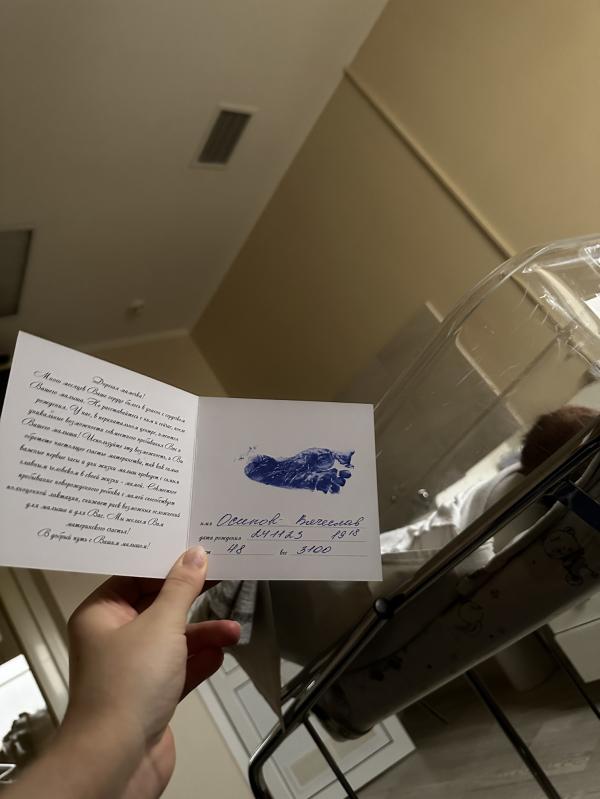 Дорогая мамочка!
Много месяцев Ваше сердце билось в унисон с сердцем
Вашего малыша. Не расставайтесь с ним и сейчас, после
рождения. У нас, в перинатальном центре, имеются
уникальные возможности совместного пребывания Вас и
Вашего малыша! Используйте эту возможность, и Вы
обретете настоящее счастье материнства, так как самые
важные первые часы и дни жизни малыш проведет с самым
главным человеком в своей жизни - мамой. Совместное
пребывание новорожденного ребенка с мамой способствует
полноценной лактации, снижает риск возможных осложнений
для малыша и для Вас. Мы желаем Вам
материнского счастья!
В добрый путь с Вашим малышом!
имя Осипов- Вячеслав
дата рождения 241125 19 18
48 вес 3100